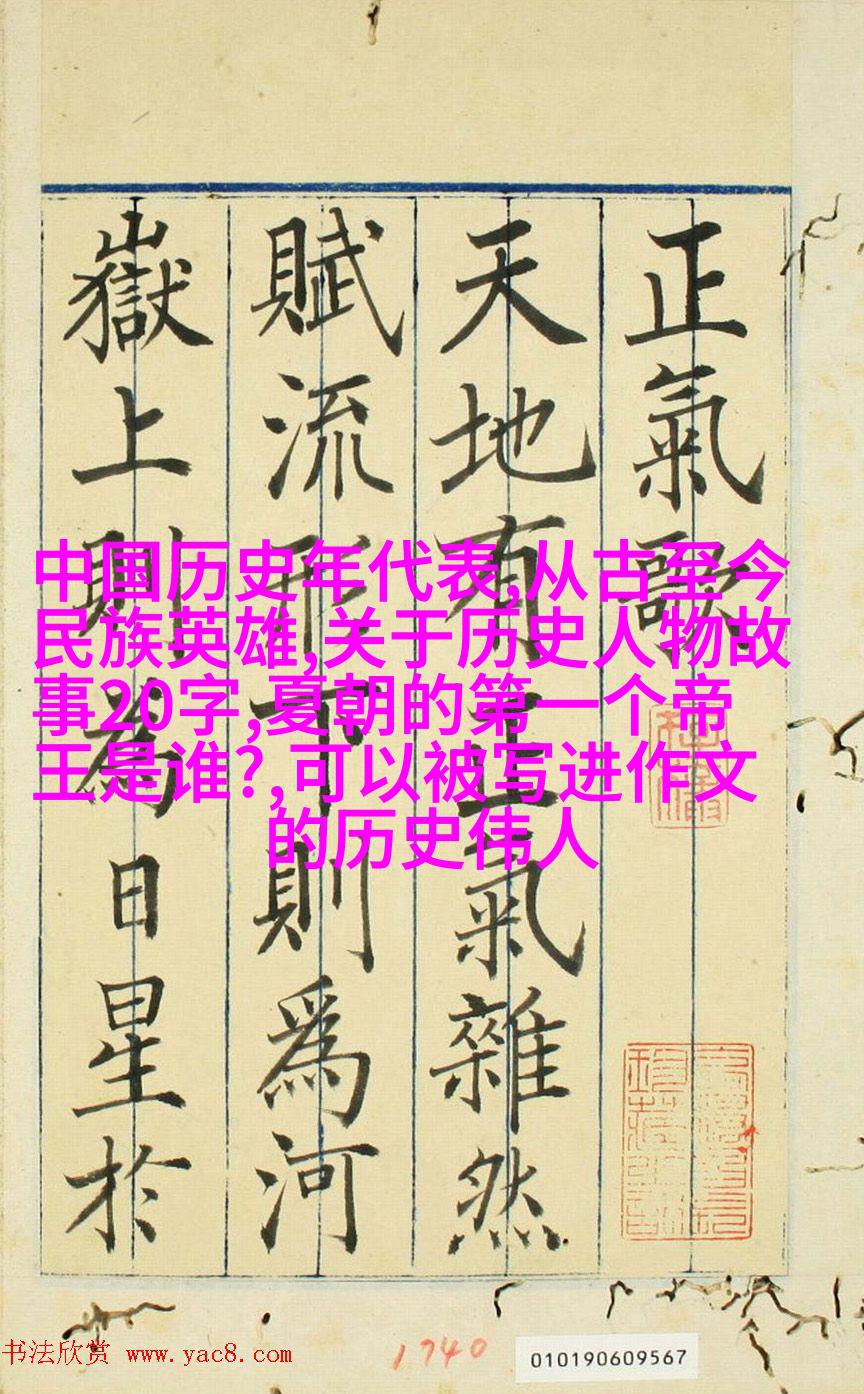 正氣歌
天地有正氣雜然
賦流形下則爲河
嶽上則為日星於
中国历史年代表,从古至今
民族英雄,关于历史人物故
事20字,夏朝的第一个帝
王是谁?,可以被写进作文
的历史伟人
书法欣赏 www.yac8.com
1740
010190609567